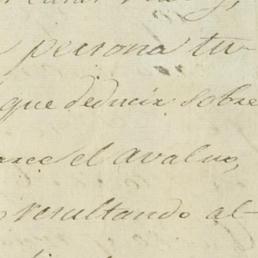 persona tu-
que deducir sobre
el avaluo,
resultando al-